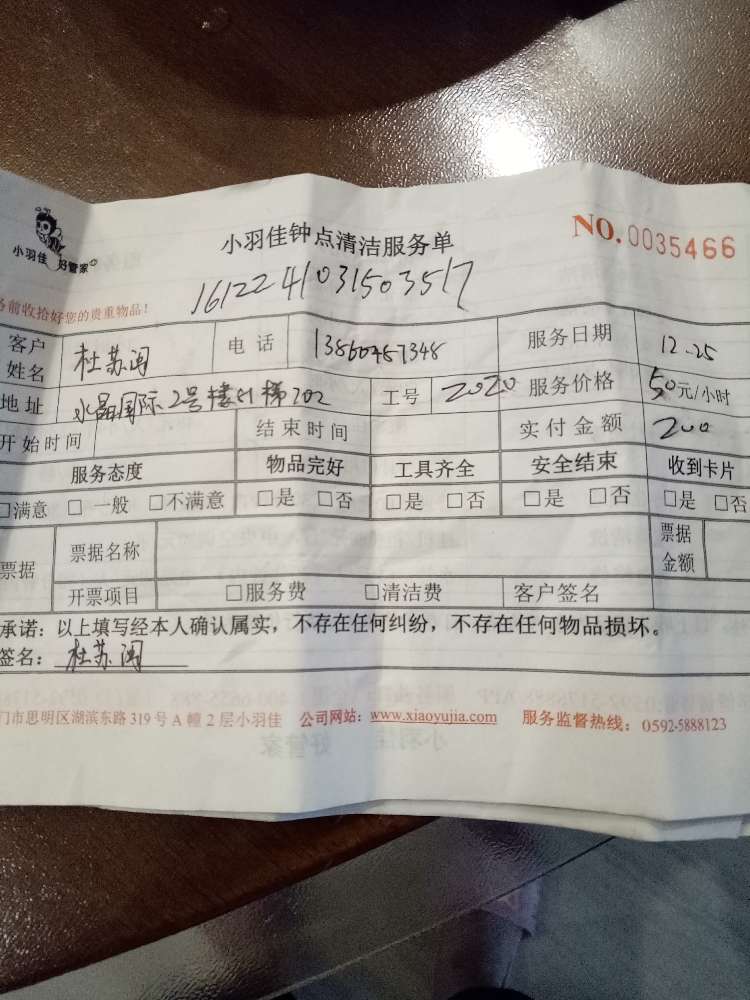 小羽佳 好管家
小羽佳钟点清洁服务单
NO. 0035466
1612241031503517
前收拾好您的贵重物品!
客户姓名 杜苏闽 电话 13860457348 服务日期 12.25
地址 水晶国际2号楼51梯702 工号 2020 服务价格 50元/小时
开始时间 结束时间 实付金额 200
服务态度 物品完好 工具齐全 安全结束 收到卡片
□满意 □一般 □不满意 □是 □否 □是 □否 □是 □否 □是 □否
票据 票据名称 票据金额
开票项目 □服务费 □清洁费 客户签名
承诺:以上填写经本人确认属实,不存在任何纠纷,不存在任何物品损坏。
签名:杜苏闽
门市思明区湖滨东路319号A幢2层小羽佳 公司网站:www.xiaoyujia.com 服务监督热线:0592-5888123